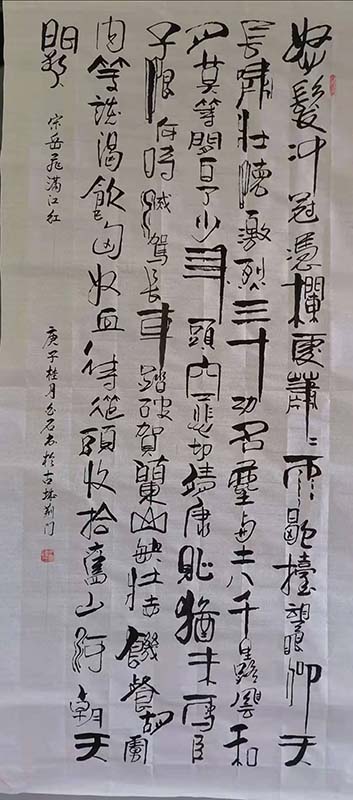 怒髮冲冠憑欄處蕭〻雨歇擡望眼仰天
長嘯壯懷激烈三十功名塵與土八千里路雲和
月莫等閒白了少年頭空悲切靖康恥猶未雪臣
子恨何時滅駕長車踏破賀蘭山缺壯志饑餐胡虜
肉笑談渴飲匈奴血待從頭收拾舊山河朝天
闕
宋岳飛滿江紅
庚子桂月石书於古城荆门